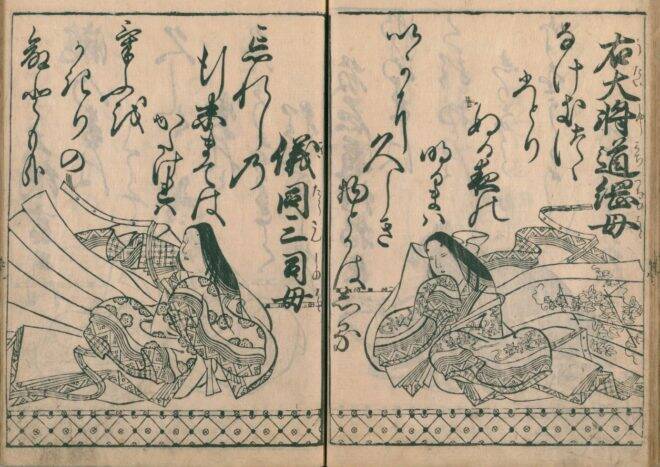 右大将道綱母
なけきつゝ
ひとり
ぬる夜の
明るまは
いかに
久しき
物とかはしる
儀同三司母
忘れしの
行末まては
かたけれは
けふを
かきりの
命ともかな